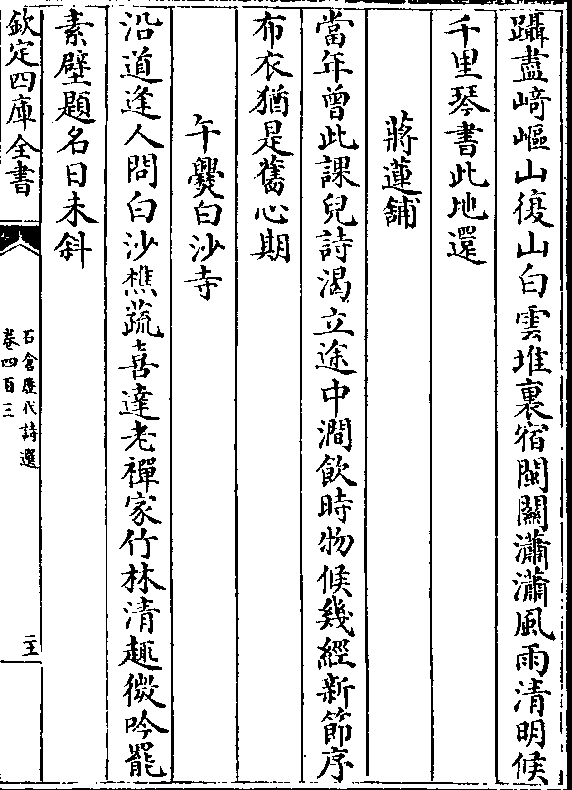 躡盡﨑嶇山復山白雲堆裏宿閩關瀟瀟風雨清明候
千里琴書此地還
蔣蓮舖
當年曾此課兒詩渴立途中澗飲時物候幾經新節序
布衣猶是舊心期
午爨白沙寺
沿道逢人問白沙樵蔬喜達老禪家竹林清趣微吟罷
素壁題名日未斜
欽定四庫全書
石倉歷代詩選
卷四百三
二十